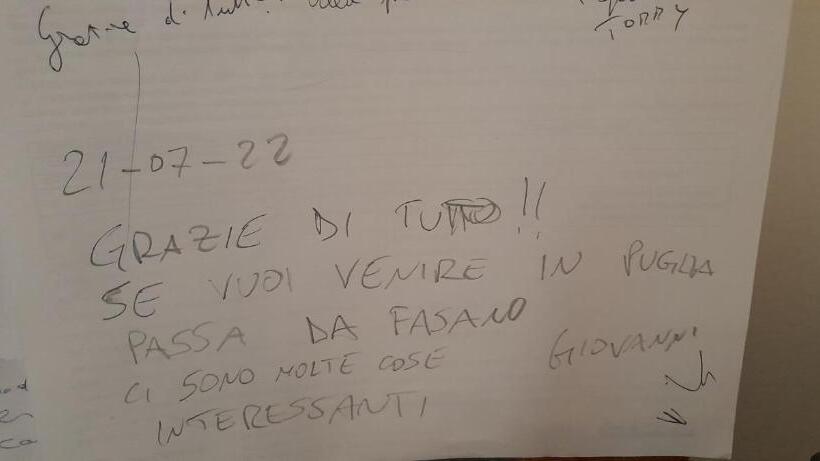 Grazie di tutto!
TORRY
21-07-22
GRAZIE DI TUTTO!!
SE VUOI VENIRE IN PUGLIA
PASSA DA FASANO
CI SONO MOLTE COSE GIOVANNI
INTERESSANTI